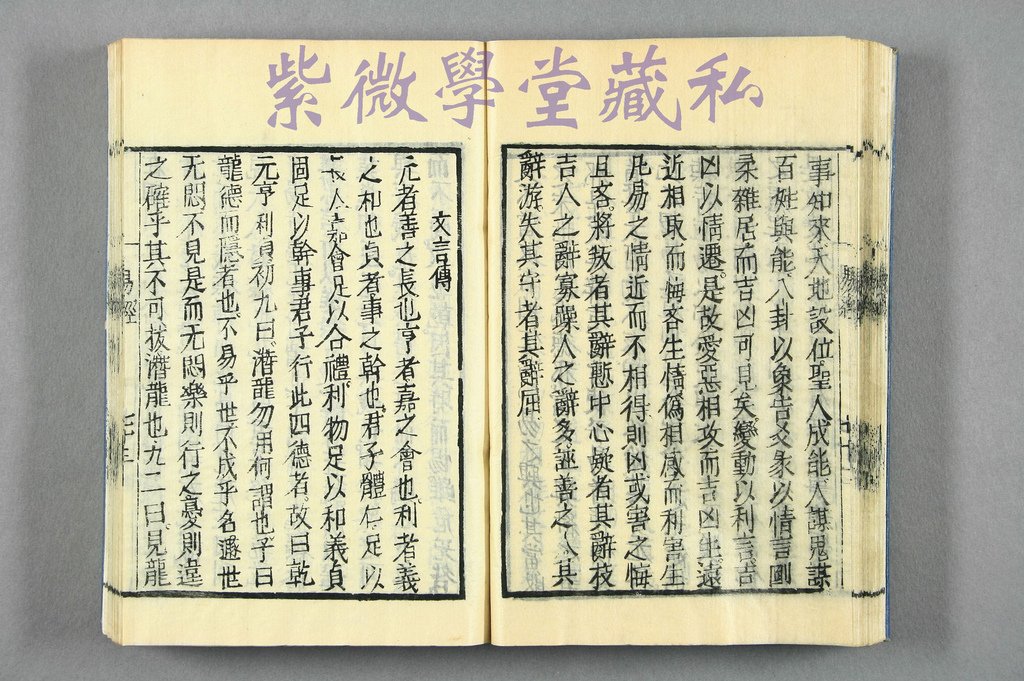 紫微學堂藏私
事知來天地設位聖人成能人謀鬼謀
百姓與能八卦以象告爻彖以情言剛
柔雜居而吉凶可見矣變動以利言吉
凶以情遷是故愛惡相攻而吉凶生遠
近相取而悔吝生情偽相感而利害生
凡易之情近而不相得則凶或害之悔
且吝將叛者其辭慙中心疑者其辭枝
吉人之辭寡躁人之辭多誣善之人其
辭游失其守者其辭屈
文言傳
元者善之長也亨者嘉之會也利者義
之和也貞者事之幹也君子體仁足以
長人嘉會足以合禮利物足以和義貞
固足以幹事君子行此四德者故曰乾
元亨利貞初九曰潛龍勿用何謂也子曰
龍德而隱者也不易乎世不成乎名遯世
无悶不見是而无悶樂則行之憂則違
之確乎其不可拔潛龍也九二曰見龍
易經